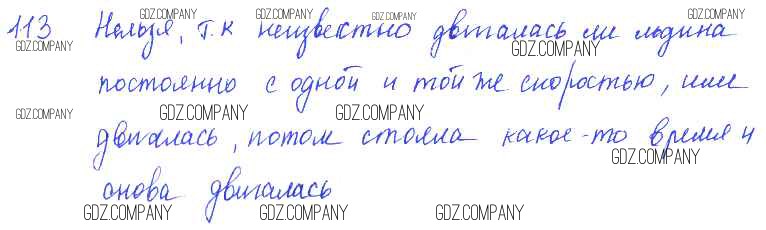 113 Нельзя, т.к неизвестно двигалась ли льдина
постоянно с одной и той же скоростью, или
двигалась, потом стояла какое-то время и
снова двигалась
GDZ.COMPANY GDZ.COMPANY GDZ.COMPANY
GDZ.COMPANY GDZ.COMPANY
GDZ.COMPANY GDZ.COMPANY GDZ.COMPANY
GDZ.COMPANY
GDZ.COMPANY GDZ.COMPANY GDZ.COMPANY